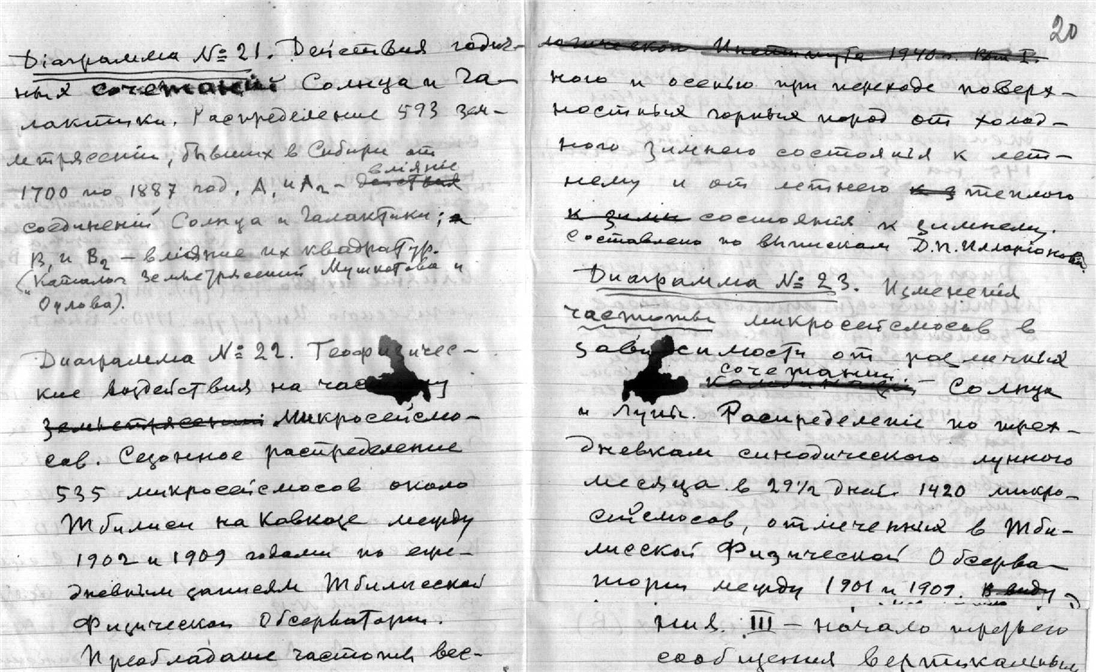 20
Діаграмма № 21. Действия годич-
ных сочетаний Солнца и Га-
лактики. Распределение 593 зем-
летрясений, бывших в Сибири от
1700 по 1887 год. А₁ и А₂ — влияние
соединений Солнца и Галактики;
В₁ и В₂ — влияние их квадратур.
(Каталог Землетрясений Мушкетова и
Орлова).
Диаграмма № 22. Геофизичес-
кие воздействия на
землетрясений Микросейсмо-
сов. Сезонное распределение
535 микросейсмосов около
Тбилиси на Кавказе между
1902 и 1909 годами по еже-
дневным записям Тбилисской
Физической Обсерватории.
Преобладание частоты вес-
Института 1940 г.
ного и осенью при переходе поверх-
ностных горных пород от холод-
ного зимнего состояния к лет-
нему и от летнего к з теплого
к зиме состояния к зимнему.
Составлено по выпискам Д.П. Илларионова
Диаграмма № 23. Изменения
частоты микросейсмосов в
зависимости от различных
сочетаний — Солнца
и Луны. Распределение по трех-
дневкам синодического лунного
месяца в 29½ дней 1420 микро-
сейсмосов, отмеченных в Тби-
лисской Физической Обсерва-
тории между 1901 и 1909. В виду
ния. III — начало третьего
сообщения вертикальные